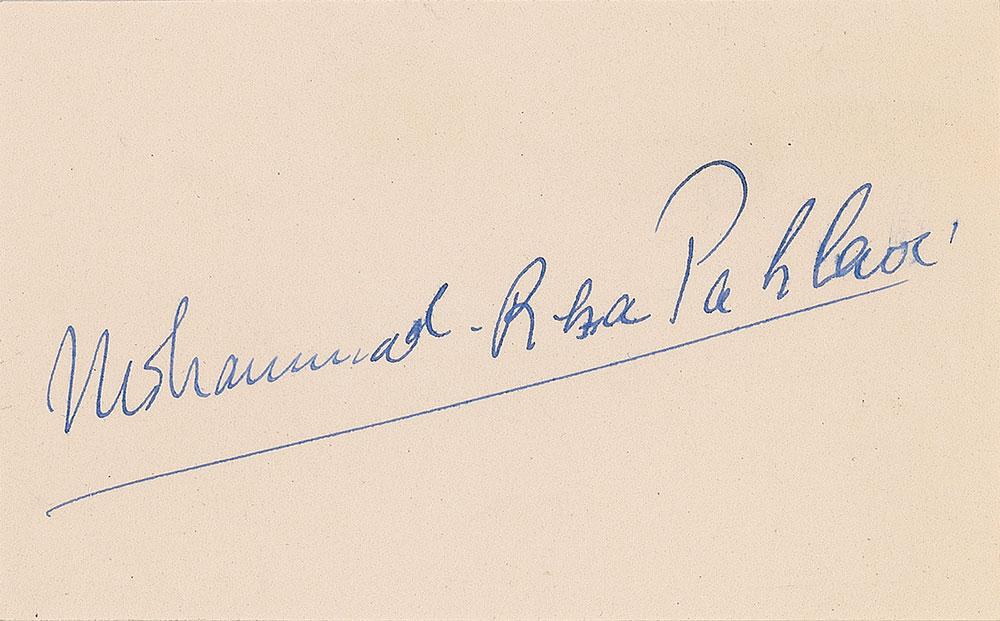 Mohammad-Reza Pahlavi